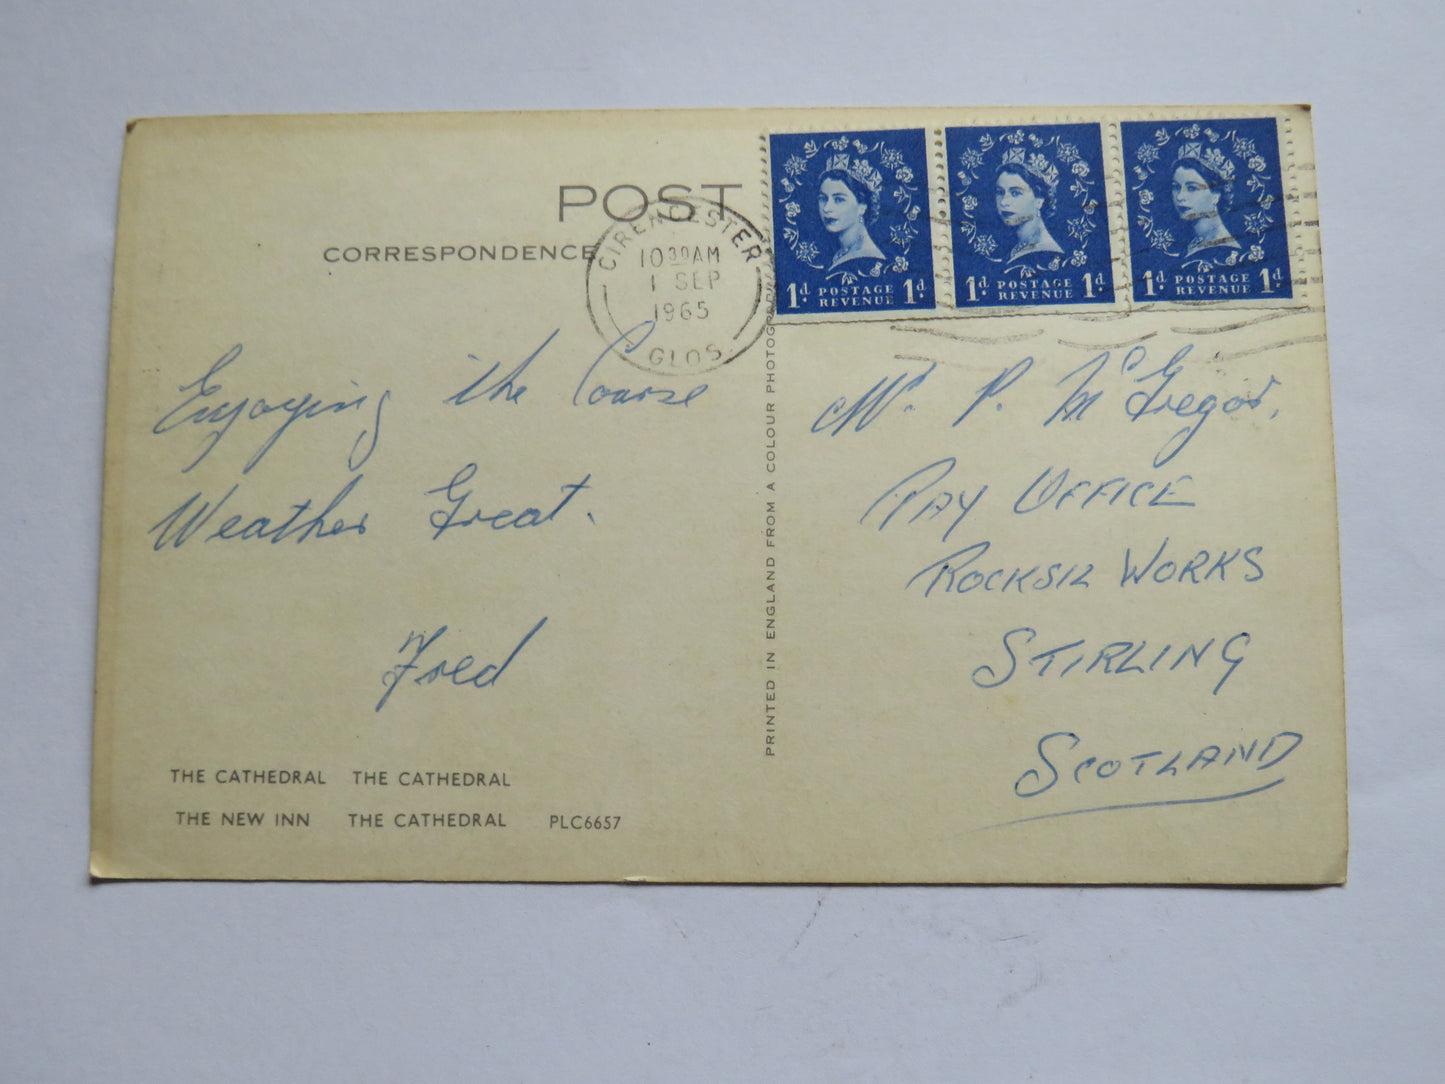 POST
CORRESPONDENCE
CIRENCESTER
10 30 AM
1 SEP
1965
GLOS.
1d. POSTAGE REVENUE 1d.
1d. POSTAGE REVENUE 1d.
1d. POSTAGE REVENUE 1d.
Enjoying the Course
Weather Great.
Fred
THE CATHEDRAL THE CATHEDRAL
THE NEW INN THE CATHEDRAL PLC6657
PRINTED IN ENGLAND FROM A COLOUR PHOTOGRAPH
Mr. P. McGregor,
PAY OFFICE
ROCKSIL WORKS
STIRLING
SCOTLAND